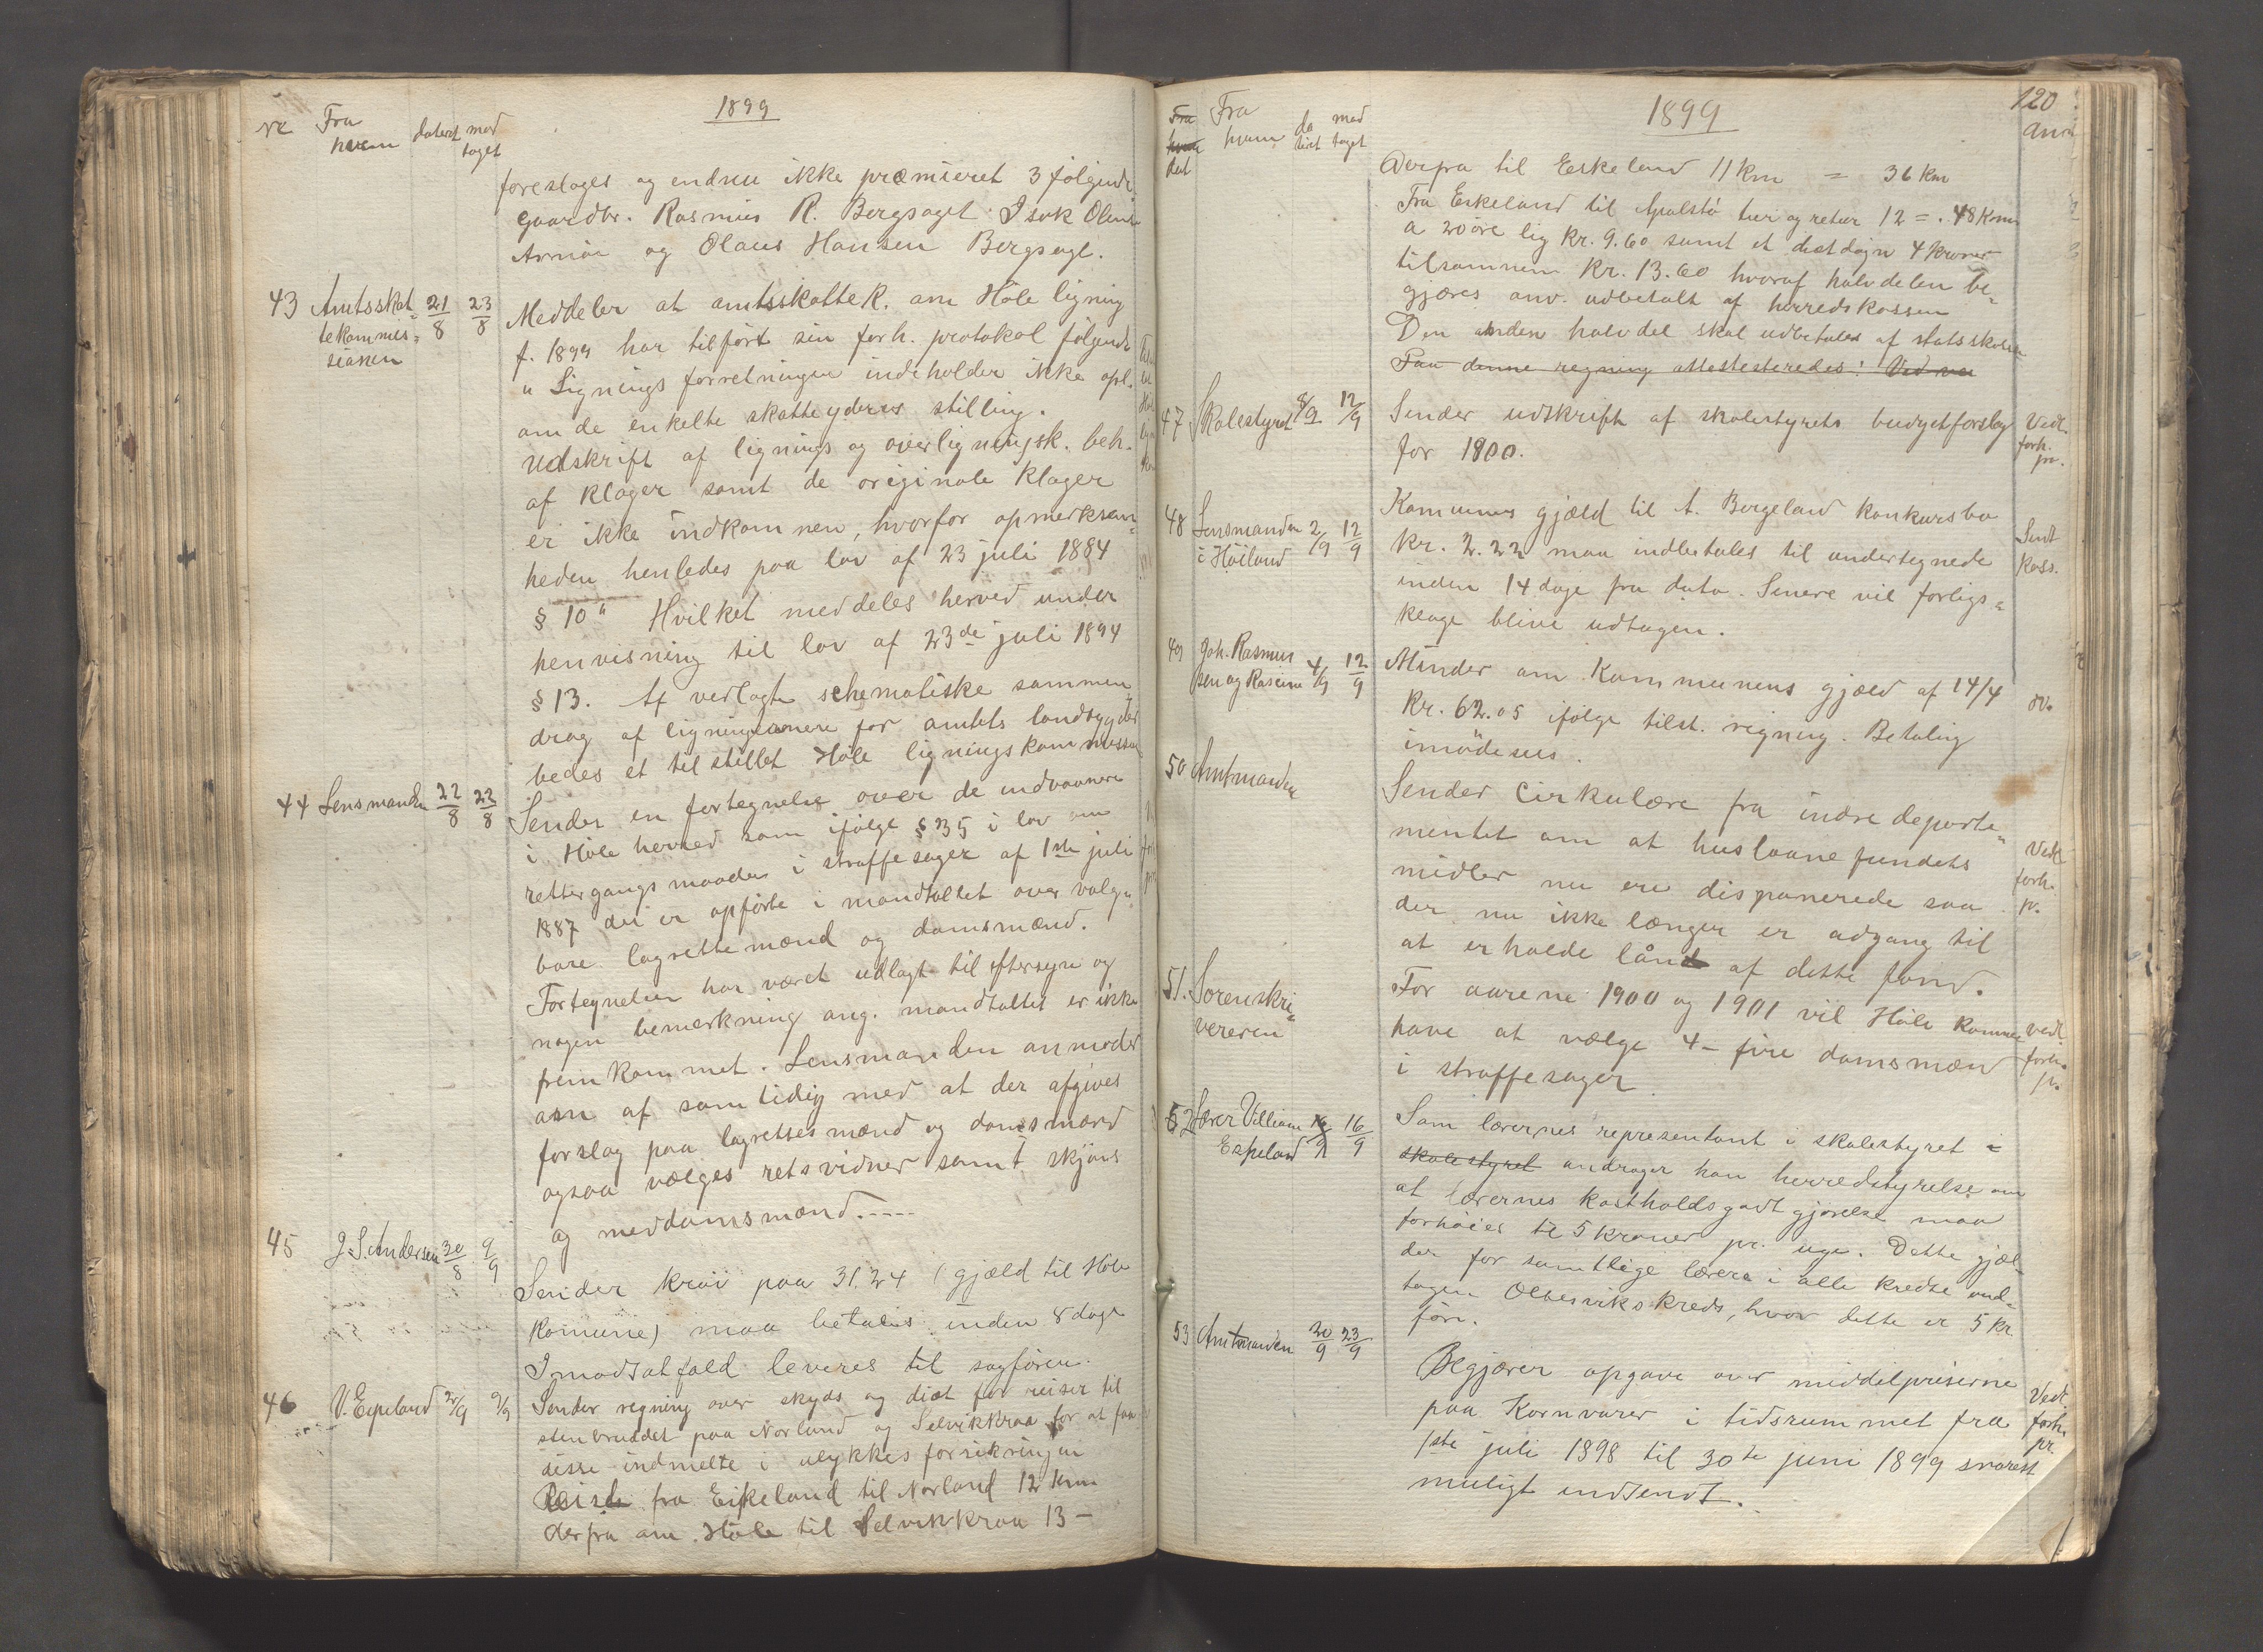 1899
nr Fra hvem dateret mod taget
foreslages og endnu ikke præmieret 3 følgende
gaardbr. Rasmus R. Bergsaget Isak Olsen
Arnøe og Olaus Hansen Bergsagt.
43 Amtsskat= tekommis= sionen 21/8 23/8
Meddeler at amtsskattek. om Høle ligning
f. 1899 har tilført sin forh. protokol følgende
" Lignings forretningen indeholder ikke opl.
om de enkelte skatteyderes stilling.
Udskrift af lignings og overligningsk. beh.
af klager samt de originale klager
er ikke indkommen, hvorfor opmerksom=
heden henledes paa lov af 23 juli 1894
§ 10" Hvilket meddeles herved under
henvisning til lov af 23de juli 1894
§ 13. Af vedlagte schematiske sammen
drag af ligningerne for amtets landbygder
bedes et tilstillet Høle ligningskommission
44 Lensmanden 22/8 23/8
Sender en fortegnelse over de indvaanere
i Høle herred som ifølge § 35 i lov om
rettergangsmaaden i straffesager af 1ste juli
1887 der er opførte i mandtallet over valg=
bare lagrettemænd og domsmænd.
Fortegnelsen har været udlagt til eftersyn og
nogen bemerkning ang. mandtallet er ikke
fremkommet. Lensmanden anmoder
om af samtidig med at der afgives
forslag paa lagrettesmænd og domsmænd
ogsaa vælges retsvidner samt skjøns
og meddomsmænd.----
45 J. S. Andersen 30/8 9/9
Sender krav paa 31.24 (gjæld til Høle
Komune) maa betales inden 8 dage
I modsat fald leveres til sagføren.
46 V. Espeland 2/9 9/9
Sender regning over skyds og diæt for reiser til
stenbruddet paa Norland og Selvikkraa for at faa
disse indmelte i ulykkesforsikringen
Reiste fra Eskeland til Norland 12 km
derfra om Høle til Selvikkraa 13 -
1899
120
Fra hvem dat Fra hvem da tert mod taget
Anm
Derfra til Eskeland 11 km = 36 km
Fra Eskeland til Apalstø tur og retur 12 = . 48 km
a 20 øre lig Kr. 9.60 samt et diætdøgn 4 kroner
tilsammen Kr. 13.60 hvoraf halvdelen be=
gjæres anv. udbetalt af herredskassen
Den anden halvdel skal udbetales af statskassen
Paa denne regning attestesteredes: Ved
47 Skolestyret 8/9 12/9
Sender udskrift af skolestyrets budgetforslag
for 1900.
Vedt. forh. pr.
48 Lensmanden i Høiland 2/9 12/9
Kommunes gjæld til A. Borgeland konkursbo
kr. 2.22 maa indbetales til undertegnede
inden 14 dage fra dato. Senere vil forligs=
klage blive udtagen.
Sendt Kass.
49 Joh. Rasmus sen og Racine 4/9 12/9
Minder om Kommunens gjæld af 14/4
Kr. 62.05 ifølge tilst. regning. Betaling
imødesees.
do.
50 Amtmanden
Sender cirkulære fra indre departe=
mentet om at huslaanefundets
midler nu ere disponerede saa
der nu ikke længer er adgang til
at erholde lån af dette fond.
Vedt forh. pr.
51. Sorenskri= veren
For aarene 1900 og 1901 vil Høle Kommune
have at vælge 4 – fire domsmæn
i straffesager
Vedt. forh. pr.
52 Lærer Villiam Espeland 16/9 16/9
Som lærernes representant i skolestyret =
skolestyret andrager han herredstyrelse om
at lærernes kostholdsgodtgjørelse maa
forhøies til 5 kroner pr. uge. Dette gjæl=
der for samtlige lærere i alle kredse und=
tagen Oltesvikskreds, hvor dette er 5 kr.
før.
53 Amtmanden 20/9 23/9
Begjærer opgave over middelpriserne
paa Kornvarer i tidsrummet fra
1ste juli 1898 til 30te juni 1899 snarest
muligt indsendt.
Vedt. forh. pr.